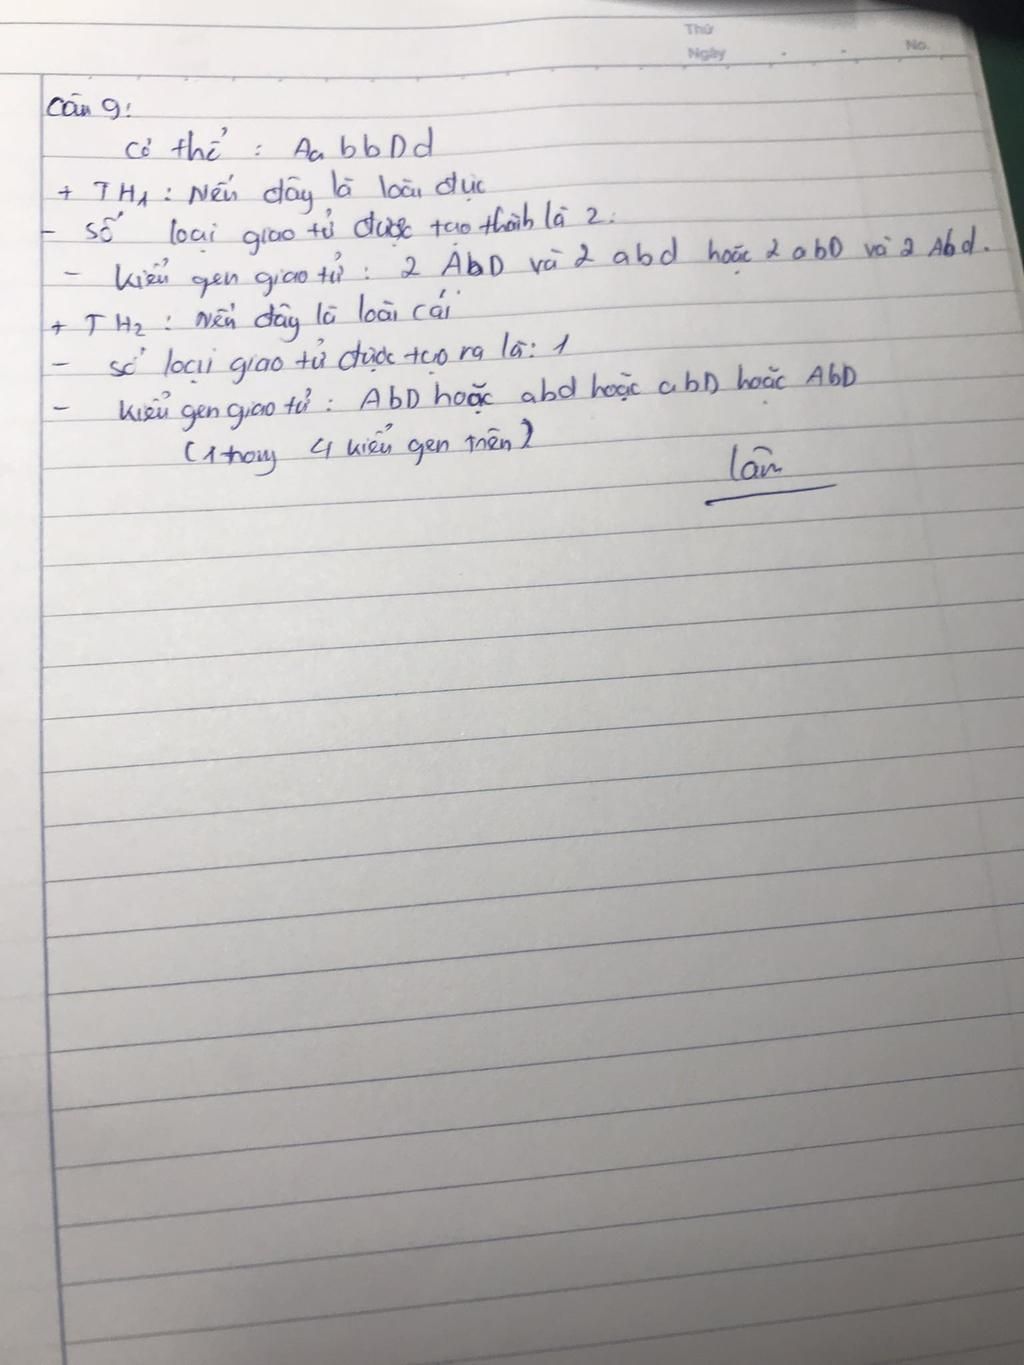 Thứ
Ngày
No.
Câu 9:
Cơ thể : Aa bb Dd
+ TH1 : Nếu đây là loài đực
- Số loại giao tử được tạo thành là 2.
- Kiểu gen giao tử : 2 AbD và 2 abd hoặc 2 abD và 2 Abd.
+ TH2 : Nếu đây là loài cái
- số loại giao tử được tạo ra là : 1
- Kiểu gen giao tử : AbD hoặc abd hoặc abD hoặc AbD
(1 trong 4 kiểu gen trên)